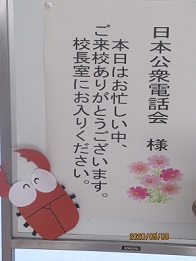 日本公衆電話会 様
本日はお忙しい中、
ご来校ありがとうございます。
校長室にお入りください。